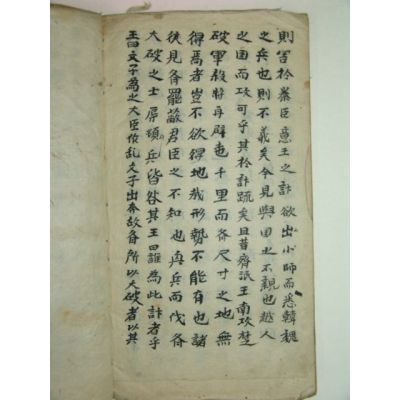 則害於秦臣意王之計欲出小師而悉韓魏
之兵也則不義矣今見與国之不親也越人
之国而攻可乎其於計疏矣且昔齊湣王南攻楚
破軍殺將再辟地千里而斉尺寸之地無
得焉者豈不欲得地哉形勢不能有也諸
侯見斉罷敝君臣之不和也興兵而伐斉
大破之士辱頓兵皆咎其王曰誰為此計者乎
王曰文子為之大臣作乱文子出奔故斉所以大破者以其